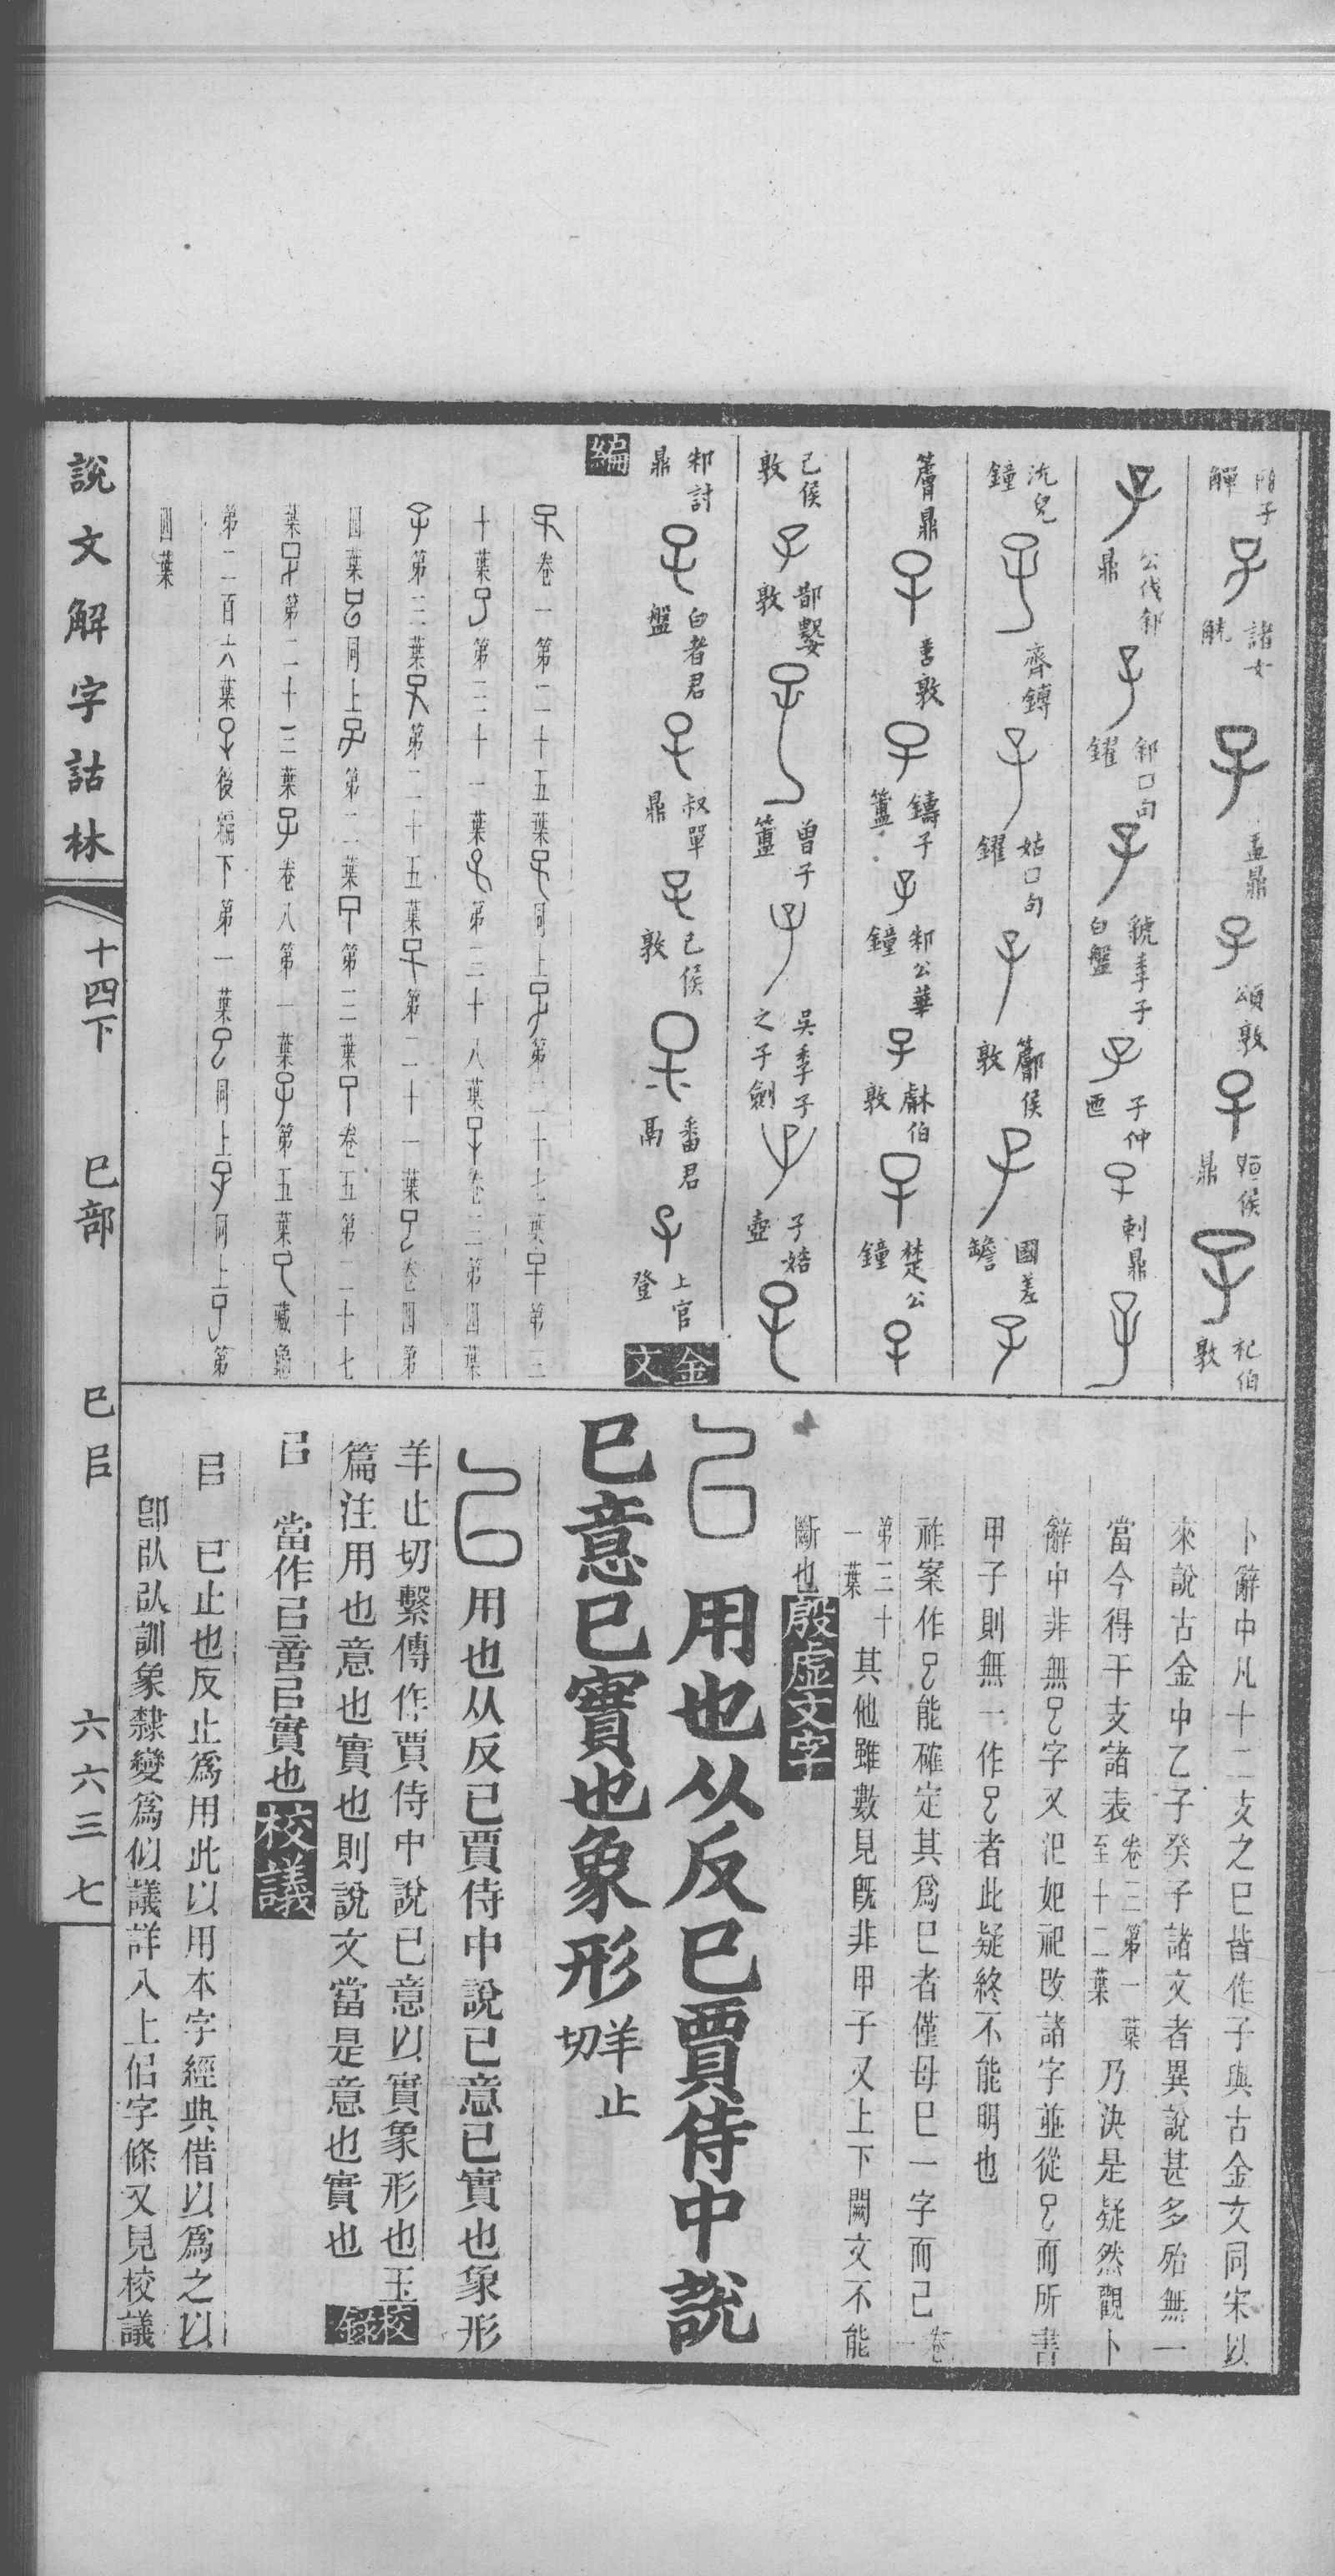 諸女
觥
盂鼎
頌敦
鼎
杞伯
敦
鼎
公伐郐
郐口句
鑃
虢季子
白盤
子仲
匜
刺鼎
沇兒
鐘
齊鎛
姑口句
鑃
侯
敦
國差
𦉜
善敦
鑄子
簠
邾公華
鐘
敦
楚公
鐘
己侯
敦
敦
曾子
簠
吳季子
之子劍
子婼
壺
邾討
鼎
白者君
盤
叔單
鼎
己侯
敦
番君
鬲
上官
登
金文
編
卷一第二十五葉同上第二十七葉第三
十葉第三十一葉第三十八葉卷三第四葉
第三葉第二十五葉第二十一葉卷四第
四葉同上第二葉第三葉卷五第二十七
葉第二十三葉卷八第一葉第五葉藏龜
第二百六葉後編下第一葉同上同上第
四葉
卜辭中凡十二支之巳皆作子與古金文同宋以
來說古金中乙子癸子諸文者異說甚多殆無一
當今得干支諸表卷三第一葉至十二葉乃決是疑然觀卜
辭中非無字又汜妃祀改諸字並從而所書
甲子則無一作者此疑終不能明也
祚案作能確定其爲巳者僅母巳一字而已卷一
第三十一葉其他雖數見旣非甲子又上下闕文不能
斷也殷虛文字
用也从反巳賈侍中說
巳意巳實也象形羊止切
用也从反已賈侍中說已意已實也象形
羊止切繫傳作賈侍中說已意以實象形也玉
篇注用也意也實也則說文當是意也實也校錄
㠯當作㠯啻㠯實也校議
㠯已止也反止爲用此以用本字經典借以爲之以
卽㕥㕥訓象隸變爲似議詳人上侣字條又見校議
說文解字詁林
十四下
巳部
巳㠯
六六三七